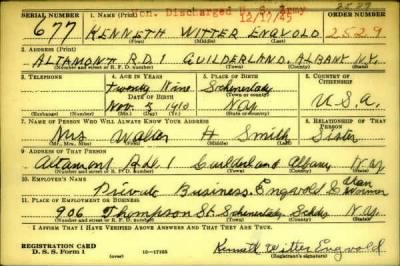 Hon. Discharged U.S. Army
12/17/45
SERIAL NUMBER 1. NAME (Print) ORDER NUMBER
677 KENNETH WITTER ENGVOLD 2529
(First) (Middle) (Last)
2. ADDRESS (Print)
ALTAMONT R.D.1 GUILDERLAND, ALBANY N.Y.
(Number and street or R. F. D. number) (Town) (County) (State)
3. TELEPHONE 4. AGE IN YEARS 5. PLACE OF BIRTH 6. COUNTRY OF CITIZENSHIP
Twenty Nine Schenectady
DATE OF BIRTH (Town or county)
Nov. 3 1910 N.Y. U.S.A.
(Exchange) (Number) (Mo.) (Day) (Yr.) (State or country)
7. NAME OF PERSON WHO WILL ALWAYS KNOW YOUR ADDRESS 8. RELATIONSHIP OF THAT PERSON
Mrs Walter H Smith Sister
(Mr., Mrs., Miss) (First) (Middle) (Last)
9. ADDRESS OF THAT PERSON
Altamont Rd. 1 Guilderland Albany N.Y.
(Number and street or R. F. D. number) (Town) (County) (State)
10. EMPLOYER'S NAME
Private Business Engvold &
11. PLACE OF EMPLOYMENT OR BUSINESS
906 Thompson St. Schenectady N.Y.
(Number and street or R. F. D. number) (Town) (County) (State)
I AFFIRM THAT I HAVE VERIFIED ABOVE ANSWERS AND THAT THEY ARE TRUE.
REGISTRATION CARD
D. S. S. Form 1 (over) Kenneth Witter Engvold
(Registrant's signature)